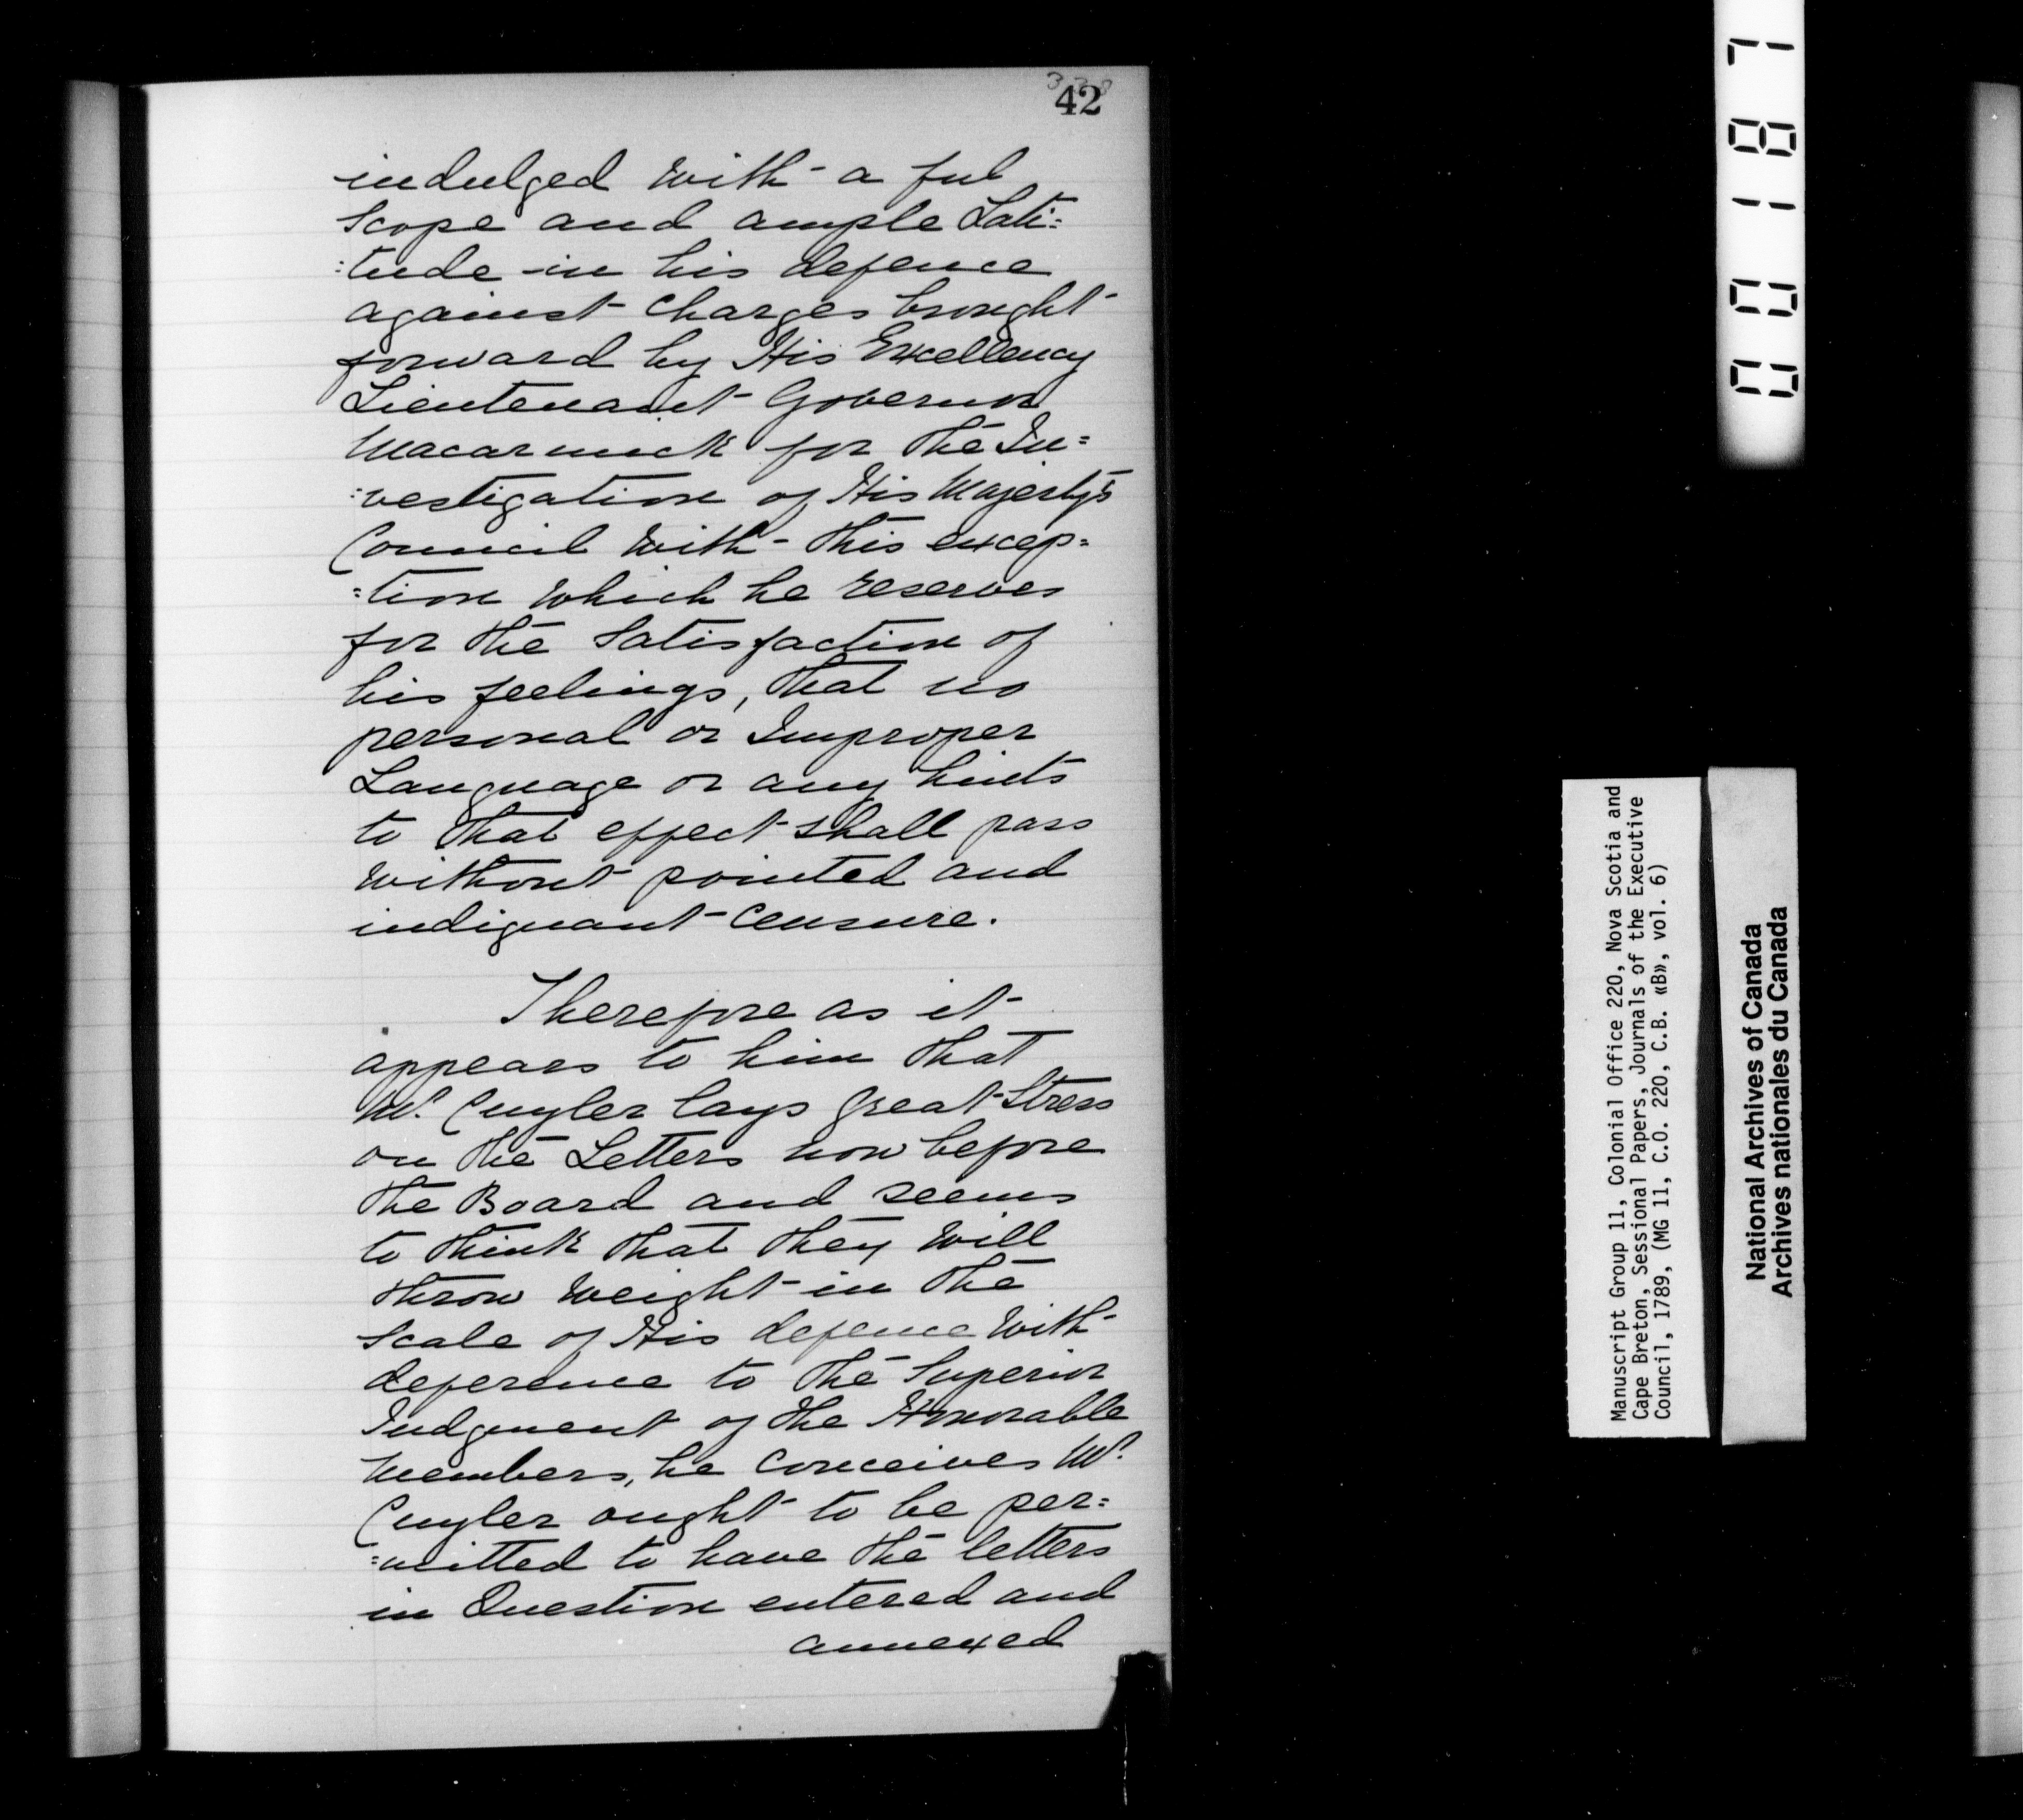 42
indulged with a ful
Scope and ample Lati=
:tude in his defence
against charges brought
forward by His Excellency
Lieutenant Governor
Macarmick for the In=
:vestigation of His Majesty's
Council with this excep=
=tion which he reserves
for the Satisfaction of
his feelings, that no
personal or Improper
Language or any hints
to that effect shall pass
without pointed and
indignant censure.
Therefore as it
appears to him that
Mr. Cuyler lays great Stress
on the Letters now before
the Board and seems
to think that they will
throw weight in the
Scale of His defence with
deference to the Superior
Judgment of the Honorable
Members, he conceives Mr.
Cuyler ought to be per=
=mitted to have the letters
in Question entered and
annexed
00187
Manuscript Group 11, Colonial Office 220, Nova Scotia and
Cape Breton, Sessional Papers, Journals of the Executive
Council, 1789, (MG 11, C.O. 220, C.B. «B», vol. 6)
National Archives of Canada
Archives nationales du Canada